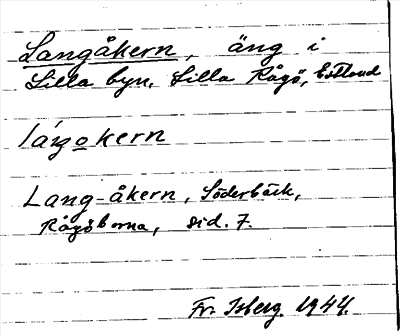 Langåkern, äng i
Lilla byn, Lilla Rågö, Estland
láŋokern
Lang-åkern, Söderbäck,
Rågöborna, sid. 7.
Fr. Isberg 1944.